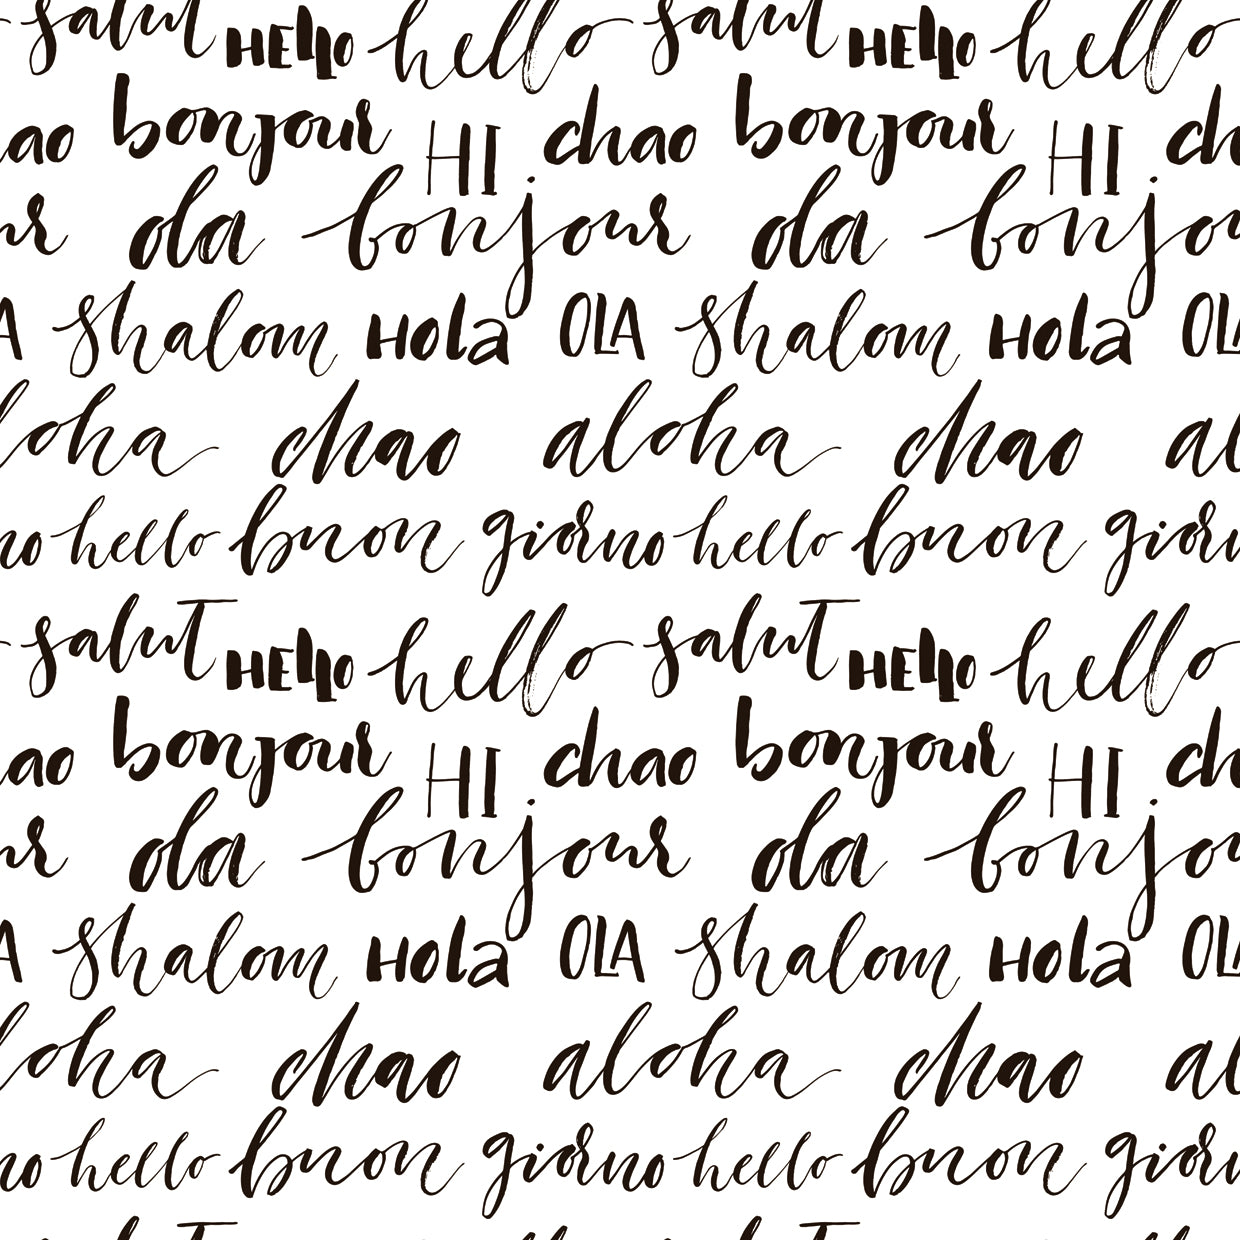 salut HELLO hello salut HELLO hello
chao bonjour HI chao bonjour HI ch
ur ola bonjour ola bonjou
A shalom Hola OLA shalom Hola OLA
loha chao aloha chao al
no hello buon giorno hello buon giorn
salut HELLO hello salut HELLO hello
hao bonjour HI chao bonjour HI ch
ur ola bonjour ola bonjou
A shalom Hola OLA shalom Hola OLA
loha chao aloha chao al
no hello buon giorno hello buon giorn